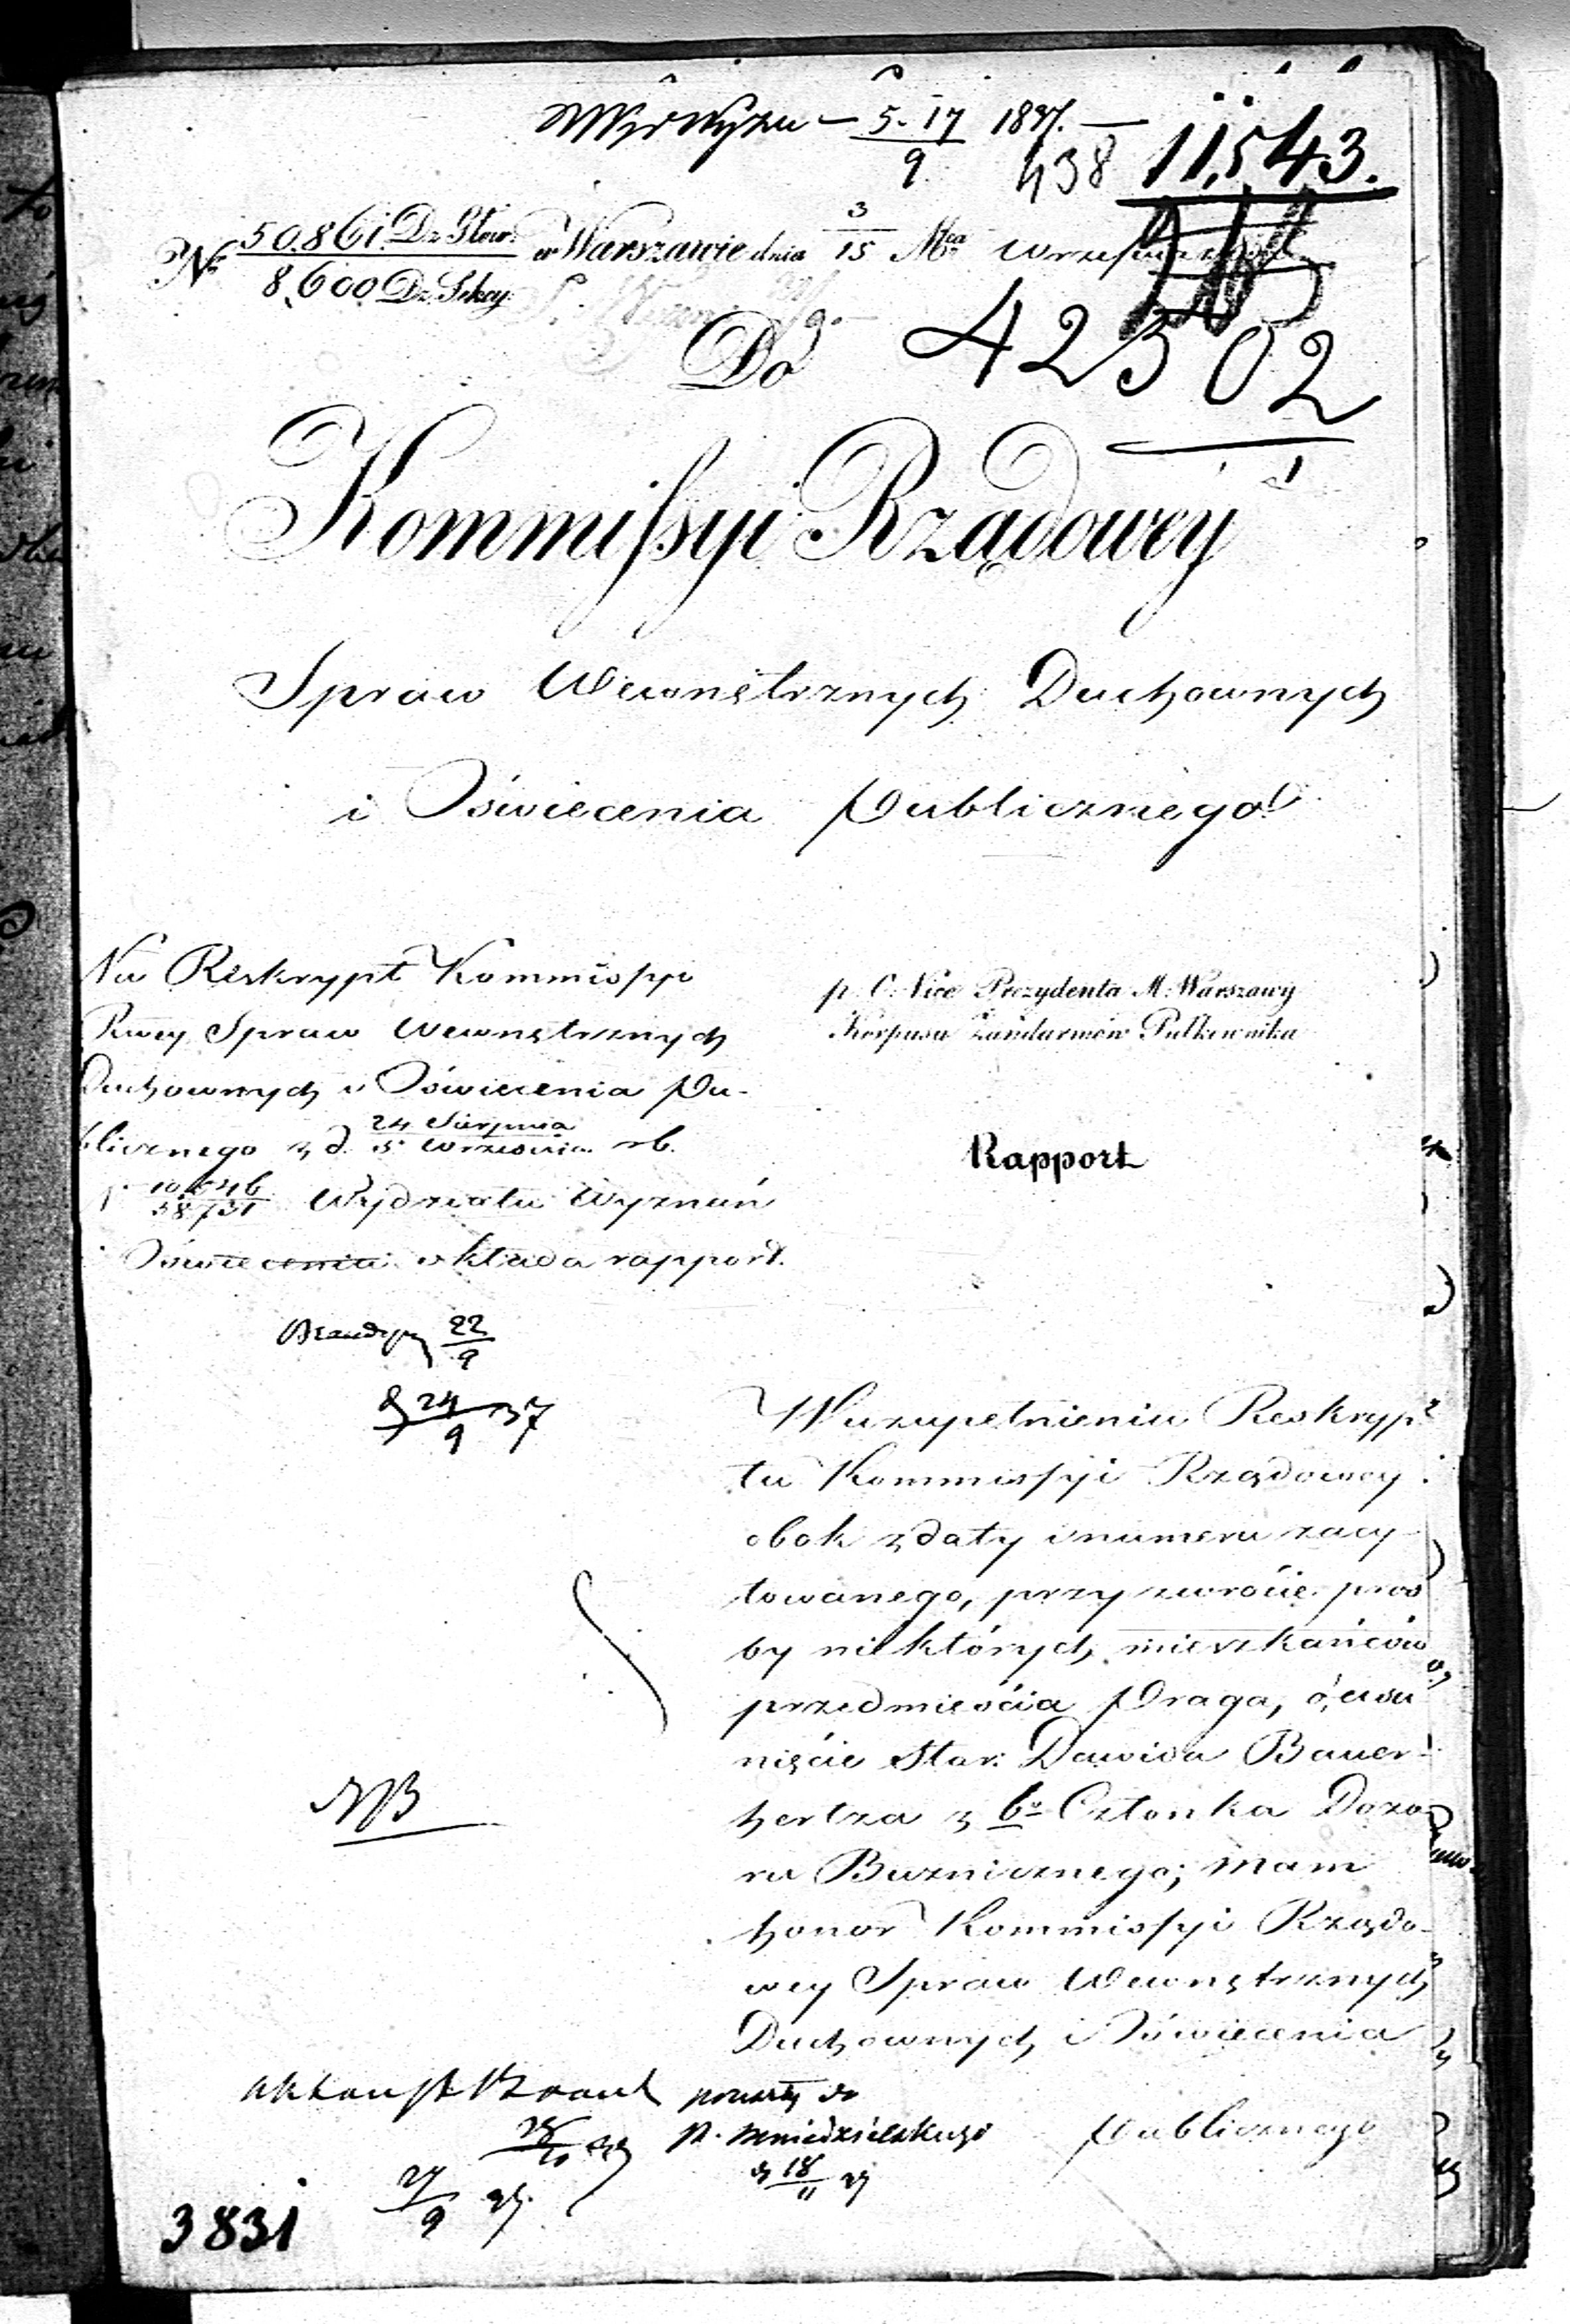 5.17 1837.
9
438 11,543.
No 50,861 Dz. Głów. w Warszawie dnia 3/15 Mca Września
8,600 Dz. Sekcy.
Do 42502
Kommissyi Rządowey
Spraw Wewnętrznych Duchownych
i Oświecenia Publicznego
Na Reskrypt Kommissyi
Rwey Spraw Wewnętrznych
Duchownych i Oświecenia Pu-
blicznego z d. 24 Sierpnia / 5 Września rb.
Wydziału Wyznań
Oświecenia składa rapport.
p. O. Vice Prezydenta M. Warszawy
Korpusu Żandarmów Pułkownika
Rapport
22
9
24
9 37
W uzupełnieniu Reskryp-
tu Kommissyi Rządowey
obok z daty i numeru zacy-
towanego, przy zwrocie proś
by niektórych mieszkańców
przedmieścia Praga, o usu
nięcie Star: Dawida Bauer-
hertza z bo Członka Dozo-
ru Bużnicznego; mam
honor Kommissyi Rządo-
wey Spraw Wewnętrznych
Duchownych i Oświecenia
Publicznego
NB
18
11
27
9
3831